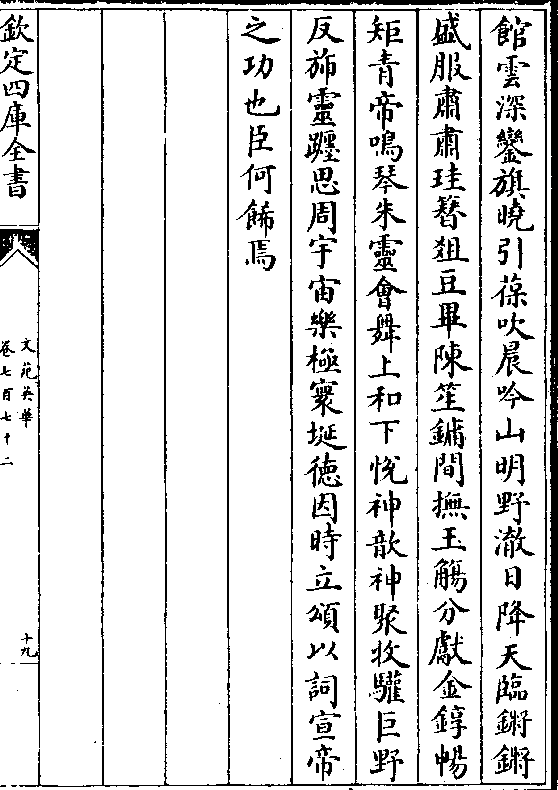 館雲深鑾旗曉引葆吹晨吟山明野澈日降天臨鏘鏘
盛服肅肅珪簪俎豆畢陳笙鏞間撫玉觴分獻金錞暢
矩青帝鳴琴朱靈會舞上和下悅神歆神聚攸驩巨野
反旆靈躔思周宇宙樂極寰埏德因時立頌以詞宣帝
之功也臣何餙焉
欽定四庫全書
文苑英華
卷七百七十二
十九